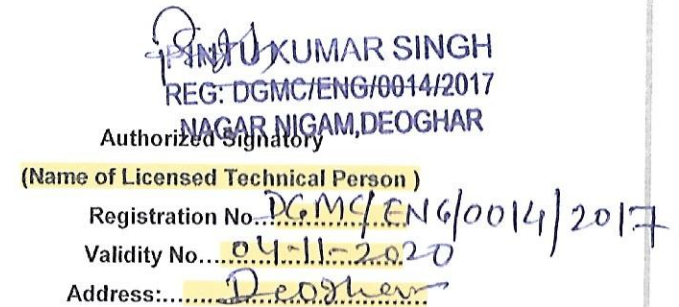 PINTU KUMAR SINGH
REG: DGMC/ENG/0014/2017
NAGAR NIGAM,DEOGHAR
Authorized Signatory
(Name of Licensed Technical Person )
Registration No....DGMC/ENG/0014/2017
Validity No....04-11-2020
Address:......Deoghar